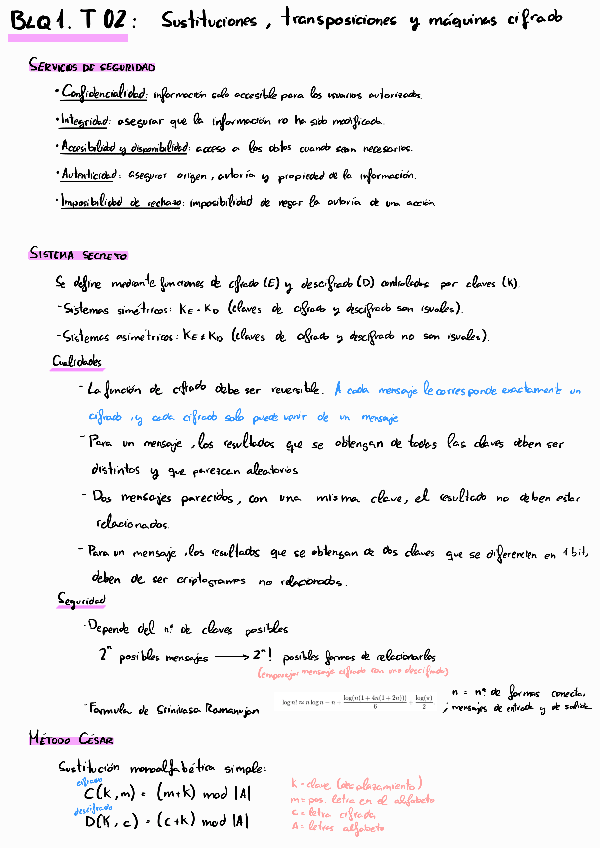 BLQ1. T02: Sustituciones, transposiciones y máquinas cifrado
SERVICIOS DE SEGURIDAD
· Confidencialidad: información solo accesible para los usuarios autorizados.
· Integridad: asegurar que la información no ha sido modificada.
· Accesibilidad y disponibilidad: acceso a los datos cuando sean necesarios.
· Autenticidad: asegurar origen, autoría y propiedad de la información.
· Imposibilidad de rechazo: imposibilidad de negar la autoría de una acción.
SISTEMA SECRETO
Se define mediante funciones de cifrado (E) y descifrado (D) controladas por claves (K).
- Sistemas simétricos: KE = KD (claves de cifrado y descifrado son iguales).
- Sistemas asimétricos: KE ≠ KD (claves de cifrado y descifrado no son iguales).
Cualidades
- La función de cifrado debe ser reversible. A cada mensaje le corresponde exactamente un
cifrado, y cada cifrado solo puede venir de un mensaje
- Para un mensaje, los resultados que se obtengan de todas las claves deben ser
distintos y que parezcan aleatorios
- Dos mensajes parecidos, con una misma clave, el resultado no deben estar
relacionados.
- Para un mensaje, los resultados que se obtengan de dos claves que se diferencien en 1 bit,
deben de ser criptogramas no relacionados.
Seguridad
· Depende del nº de claves posibles
2ⁿ posibles mensajes ⟶ 2ⁿ! posibles formas de relacionarlos
(emparejar mensaje cifrado con uno descifrado)
- Fórmula de Srinivasa Ramanujan log n! ≈ n log n − n + log(n(1 + 4n(1 + 2n)))/6 + log(π)/2 ; n = nº de formas conecta.
mensajes de entrada y de salida
MÉTODO CÉSAR
Sustitución monoalfabética simple:
cifrado
C(k, m) = (m+k) mod |A|
descifrado
D(k, c) = (c+k) mod |A|
k = clave (desplazamiento)
m = pos. letra en el alfabeto
c = letra cifrada
A = letras alfabeto